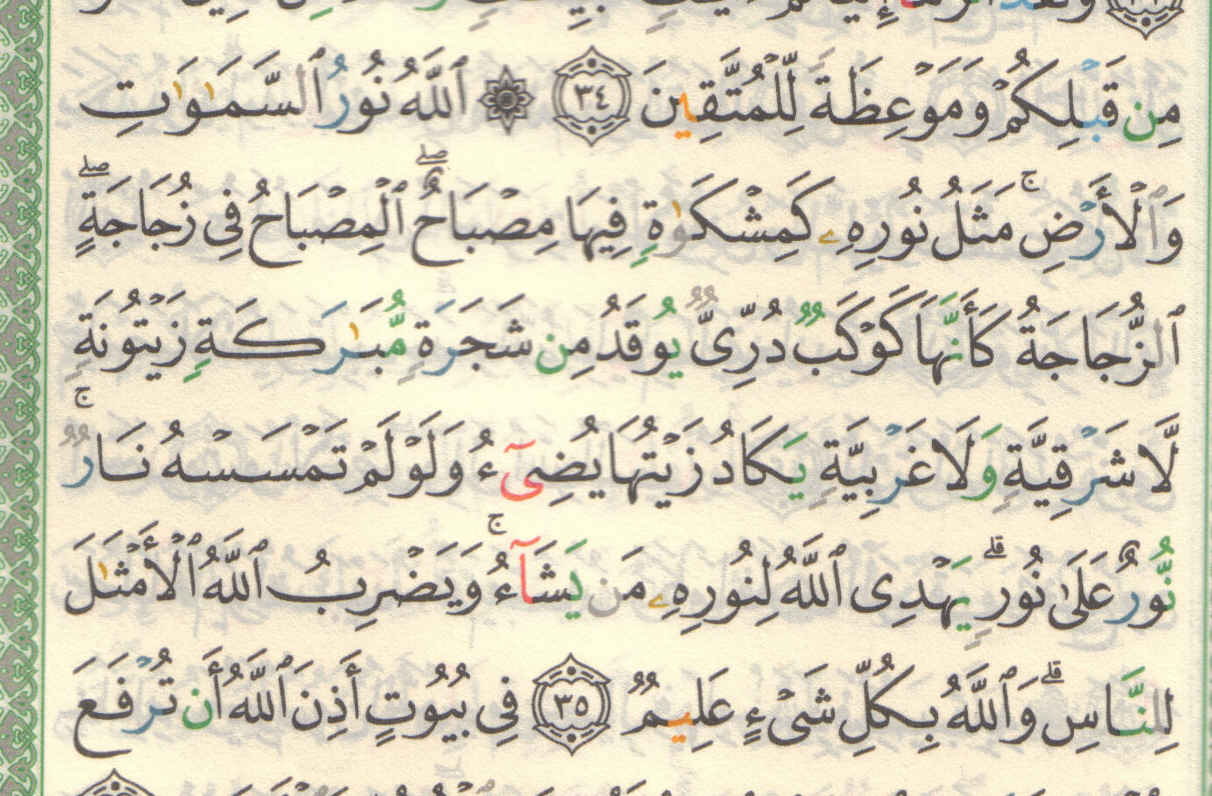 مِن قَبْلِكُمْ وَمَوْعِظَةً لِّلْمُتَّقِينَ ﴿٣٤﴾ ۞ ٱللَّهُ نُورُ ٱلسَّمَـٰوَٰتِ
وَٱلْأَرْضِ ۚ مَثَلُ نُورِهِۦ كَمِشْكَوٰةٍ فِيهَا مِصْبَاحٌ ۖ ٱلْمِصْبَاحُ فِى زُجَاجَةٍ ۖ
ٱلزُّجَاجَةُ كَأَنَّهَا كَوْكَبٌ دُرِّىٌّ يُوقَدُ مِن شَجَرَةٍ مُّبَـٰرَكَةٍ زَيْتُونَةٍ
لَّا شَرْقِيَّةٍ وَلَا غَرْبِيَّةٍ يَكَادُ زَيْتُهَا يُضِىٓءُ وَلَوْ لَمْ تَمْسَسْهُ نَارٌ ۚ
نُّورٌ عَلَىٰ نُورٍ ۗ يَهْدِى ٱللَّهُ لِنُورِهِۦ مَن يَشَآءُ ۚ وَيَضْرِبُ ٱللَّهُ ٱلْأَمْثَـٰلَ
لِلنَّاسِ ۗ وَٱللَّهُ بِكُلِّ شَىْءٍ عَلِيمٌ ﴿٣٥﴾ فِى بُيُوتٍ أَذِنَ ٱللَّهُ أَن تُرْفَعَ